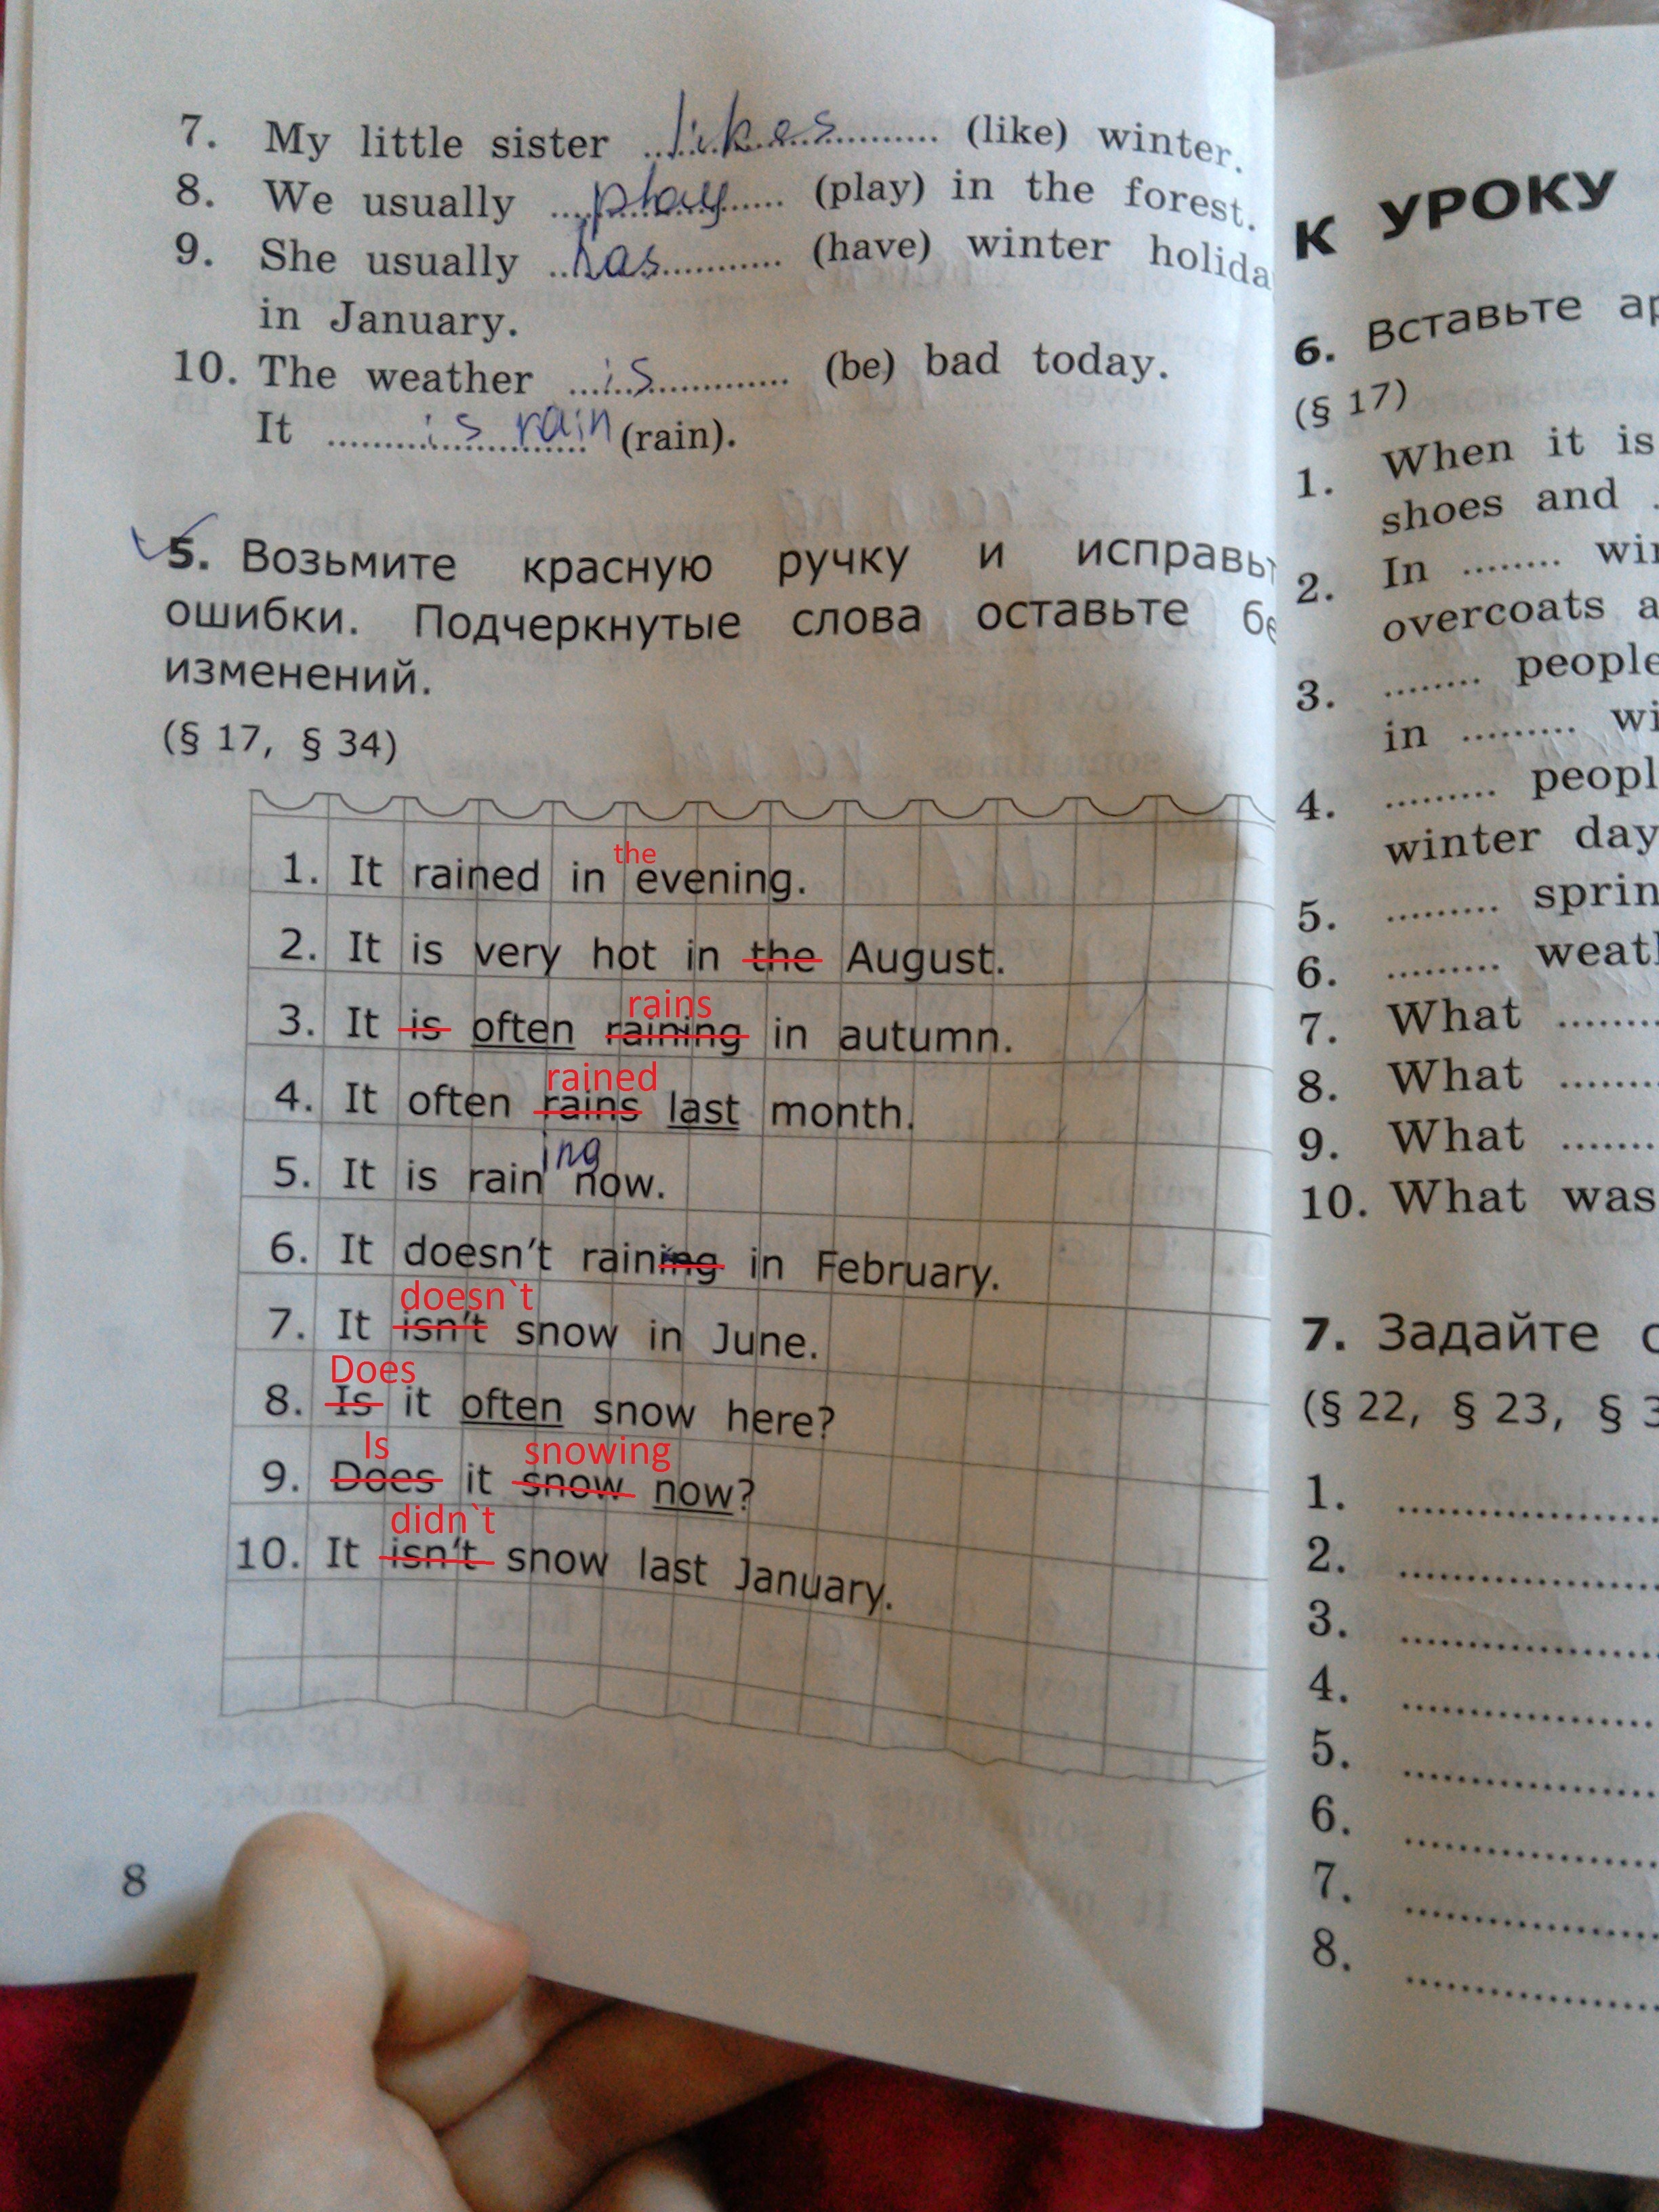 7. My little sister likes (like) winter.
8. We usually play (play) in the forest.
9. She usually has (have) winter
in January.
10. The weather is (be) bad today.
It is rain (rain).
5. Возьмите красную ручку и
ошибки. Подчеркнутые слова оставьте
изменений.
(§ 17, § 34)
the
1. It rained in evening.
2. It is very hot in the August.
rains
3. It is often raining in autumn.
rained
4. It often rains last month.
ing
5. It is rain now.
6. It doesn't raining in February.
doesn`t
7. It isn't snow in June.
Does
8. Is it often snow here?
Is snowing
9. Does it snow now?
didn`t
10. It isn't snow last January.
8
К УРОКУ
6. Вставьте
(§ 17)
1. When it is
shoes and
2. In ........
overcoats
3. ........ people
in .........
4. .........
winter
5. .........
6. .........
7. What ........
8. What .......
9. What .......
10. What was
7. Задайте
(§ 22, § 23, §
1.
2.
3.
4.
5.
6.
7.
8.